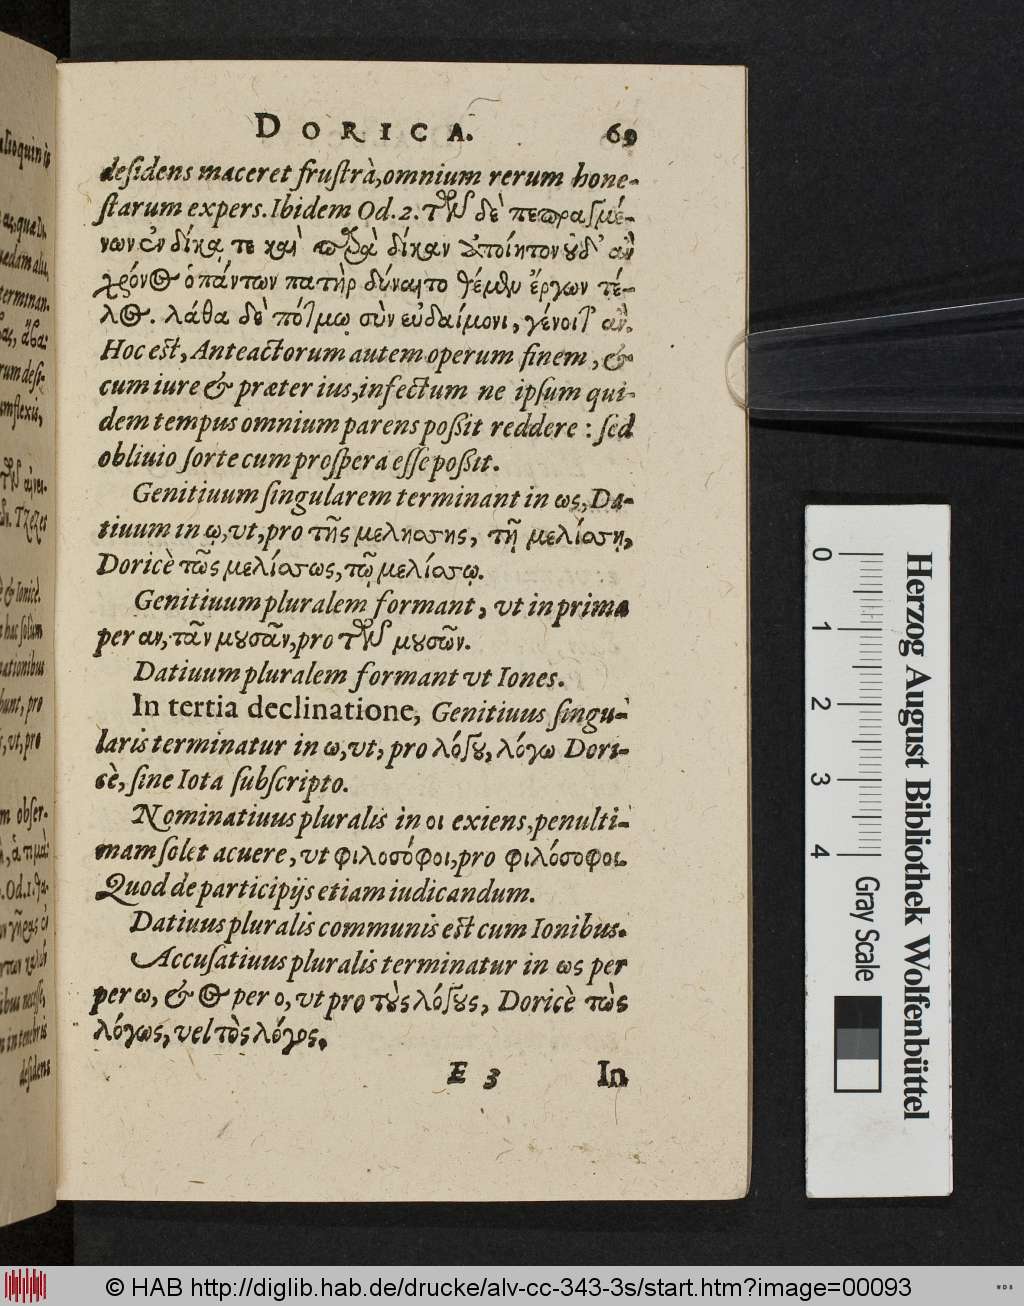 DORICA. 69
desidens maceret frustrà, omnium rerum hone-
starum expers. Ibidem Od. 2. τῶν δὲ πεπραγμέ-
νων ἐν δίκᾳ τε καὶ παρὰ δίκαν ἀποίητον οὐδ' ἂν
χρόνος ὁ πάντων πατὴρ δύναιτο θέμεν ἔργων τέ-
λος. λάθα δὲ πότμῳ σὺν εὐδαίμονι, γένοιτ' ἂν.
Hoc est, Anteactorum autem operum finem, &
cum iure & præter ius, infectum ne ipsum qui-
dem tempus omnium parens possit reddere : sed
obliuio sorte cum prospera esse possit.
Genitiuum singularem terminant in ως, Da-
tiuum in ῳ, vt, pro τῆς μελήσσης, τῇ μελίσσῃ,
Doricè τῶς μελίσσως, τῷ μελίσσῳ.
Genitiuum pluralem formant, vt in prima
per αν, τᾶν μουσᾶν, pro τῶν μουσῶν.
Datiuum pluralem formant vt Iones.
In tertia declinatione, Genitiuus singu-
laris terminatur in ω, vt, pro λόγου, λόγω Dori-
cè, sine Iota subscripto.
Nominatiuus pluralis in οι exiens, penulti-
mam solet acuere, vt φιλοσόφοι, pro φιλόσοφοι.
Quod de participijs etiam iudicandum.
Datiuus pluralis communis est cum Ionibus.
Accusatiuus pluralis terminatur in ως per
per ω, & ος per ο, vt pro τοὺς λόγους, Doricè τὼς
λόγως, vel τὸς λόγος.
E 3 In
alioquin in
as, quæ Do-
terminan-
Tzetzes
& Ionicè.
hac solùm
nationibus
bunt, pro
s, vt, pro
m obser-
Od. 1.
desidens
0 1 2 3 4
Gray Scale
Herzog August Bibliothek Wolfenbüttel
© HAB http://diglib.hab.de/drucke/alv-cc-343-3s/start.htm?image=00093